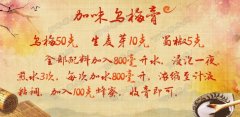 加味乌梅膏
乌梅50克 生麦芽10克 蜀椒5克
全部配料加入800毫升开水，浸泡一夜
煎水3次，每次加水800毫升，浓缩至汁液
粘稠，加入100克蜂蜜，收膏即可。